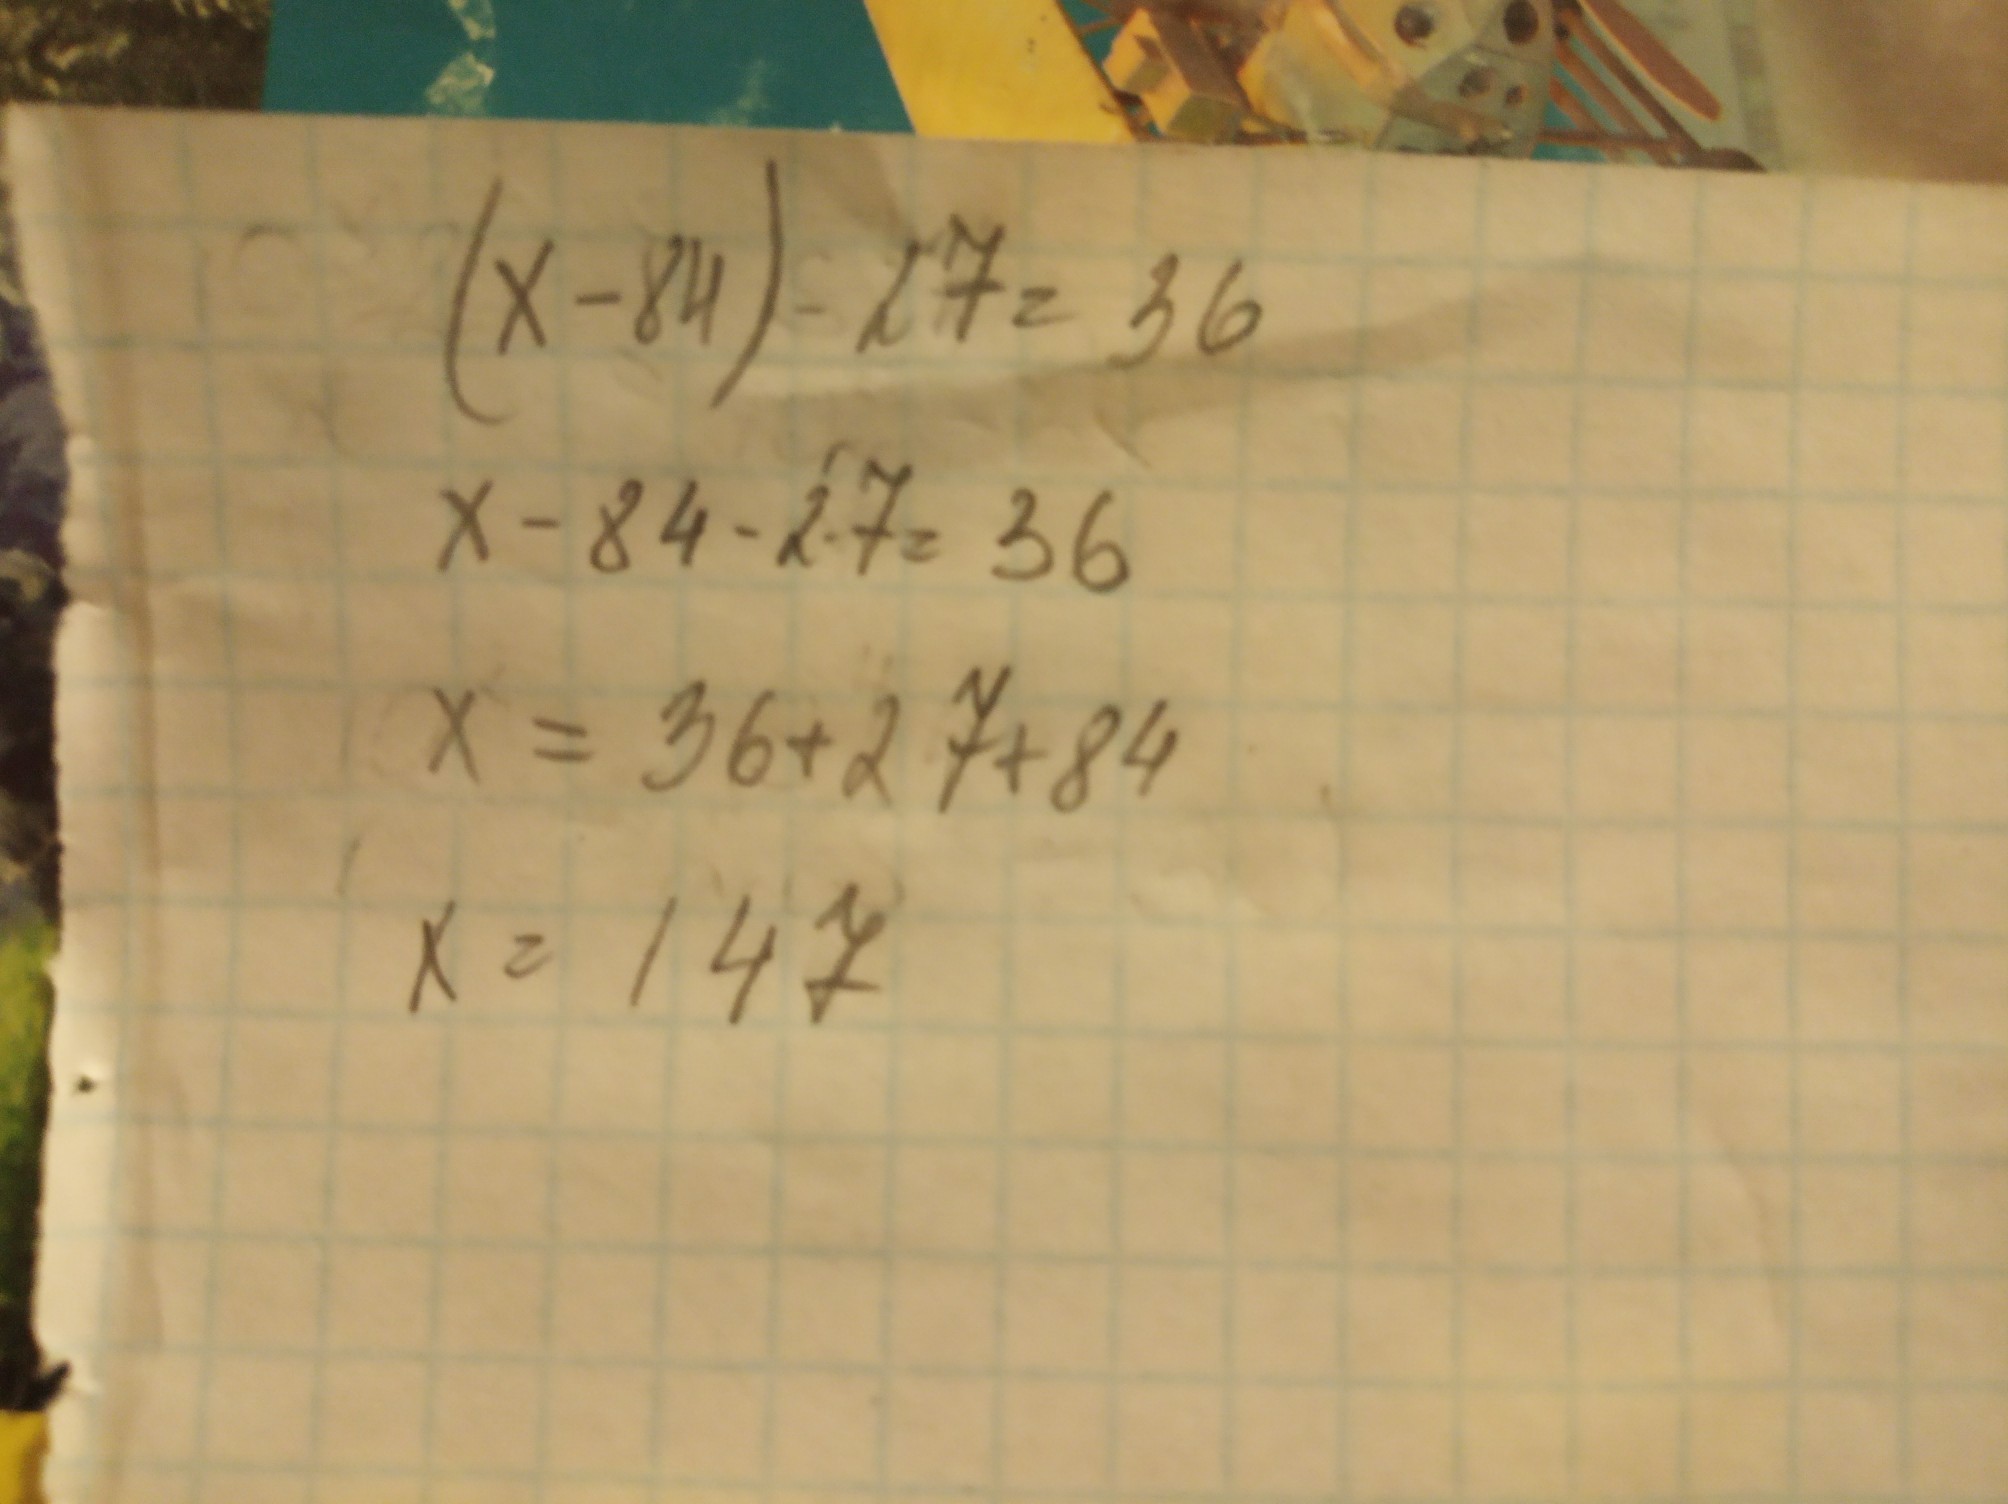 (x-84)-27=36
x-84-27=36
x=36+27+84
x=147